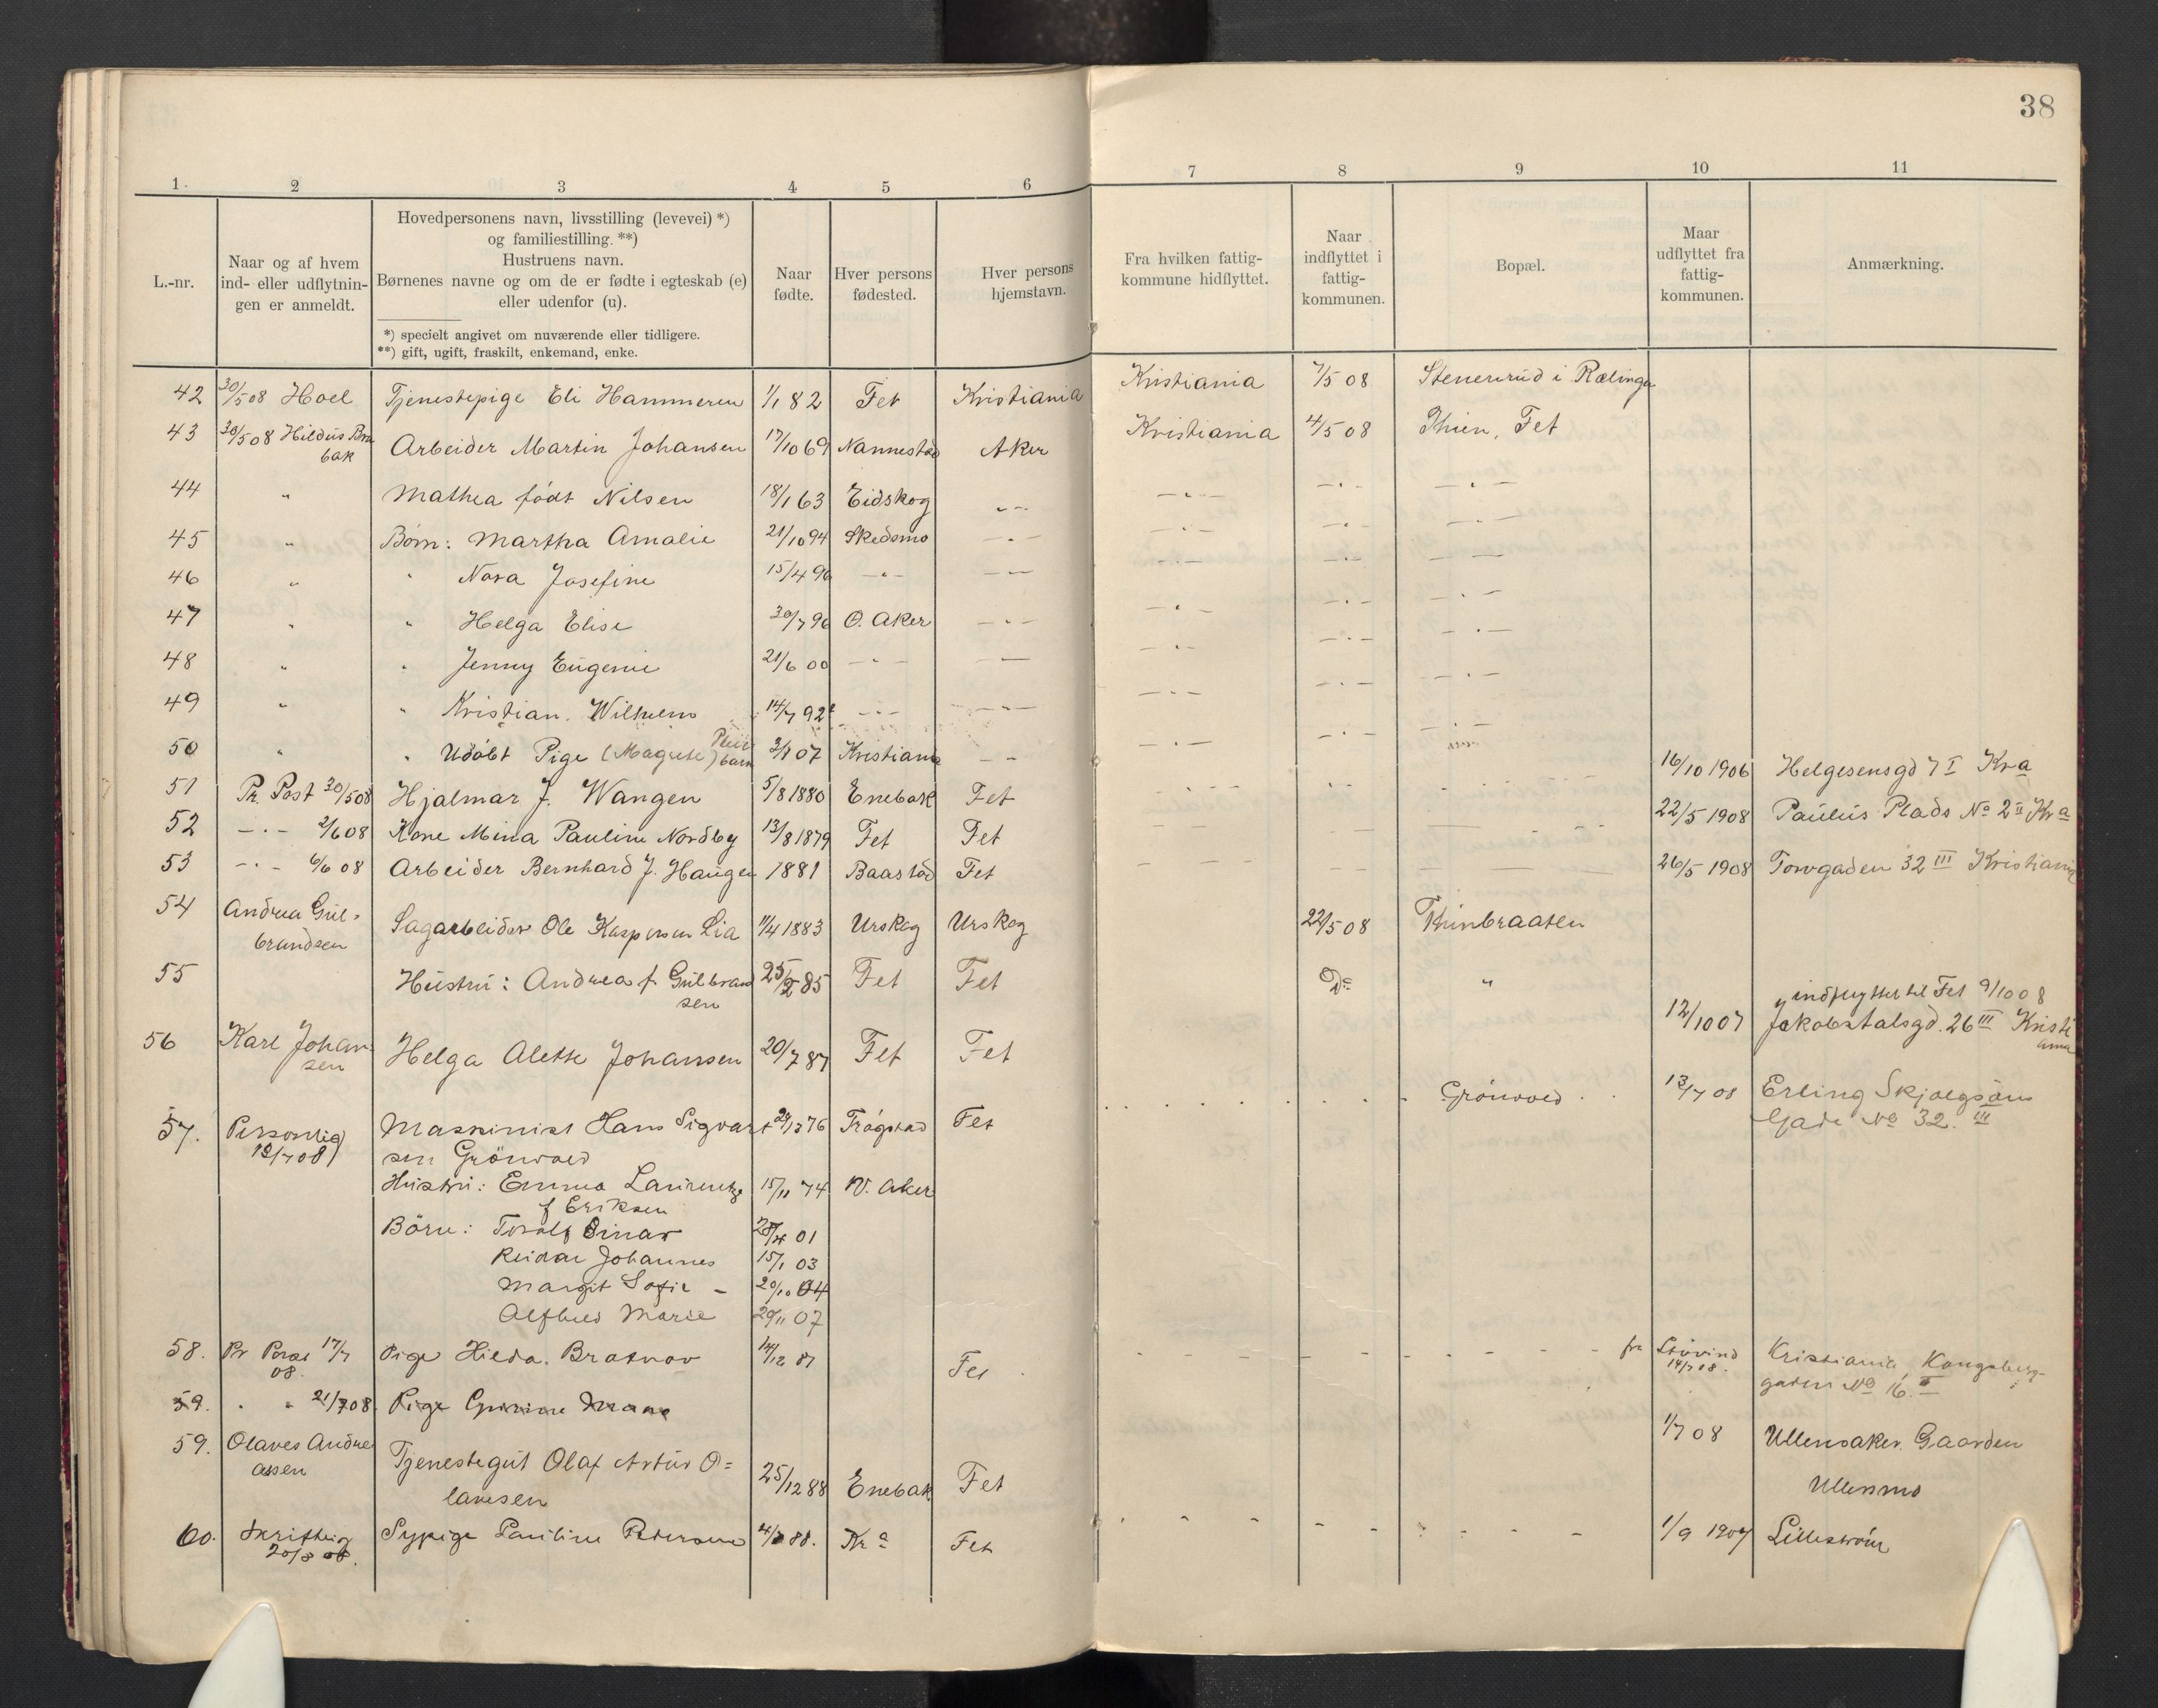 38
1. 2 3 4 5 6 7 8 9 10 11
L.-nr.
Naar og af hvem
ind- eller udflytnin-
gen er anmeldt.
Hovedpersonens navn, livsstilling (levevei) *)
og familiestilling. **)
Hustruens navn.
Børnenes navne og om de er fødte i egteskab (e)
eller udenfor (u).
*) specielt angivet om nuværende eller tidligere.
**) gift, ugift, fraskilt, enkemand, enke.
Naar
fødte.
Hver persons
fødested.
Hver persons
hjemstavn.
Fra hvilken fattig-
kommune hidflyttet.
Naar
indflyttet i
fattig-
kommunen.
Bopæl.
Maar
udflyttet fra
fattig-
kommunen.
Anmærkning.
42 30/5 08 Hoel Tjenestepige Eli Hammeren 1/1 82 Fet Kristiania Kristiania 7/5 08 Stenerud i Rælingen
43 30/5 08 Hildus Bra
bak Arbeider Martin Johansen 17/10 69 Nannestad Aker Kristiania 4/5 08 Thien, Fet
44 " Mathea født Nilsen 18/1 63 Eidskog -"- -"- -"- -"-
45 " Børn: Martha Amalie 21/10 94 Skedsmo -"- -"- -"- -"-
46 " " Nora Josefine 15/4 96 -"- -"- -"- -"- -"-
47 " " Helga Elise 30/7 96 O. Aker -"- -"- -"- -"-
48 " " Jenny Eugenie 21/6 00 -"- -"- -"- -"- -"-
49 " " Kristian Wilhelm 14/7 92 -"- -"- -"- -"- -"-
50 " " Udøbt Pige (Magrete) Pleie
barn 3/8 07 Kristiania -"- -"- -"- -"-
51 Pr. Post 30/5 08 Hjalmar J. Wangen 5/8 1880 Enebak Fet 16/10 1906 Helgesensgd 7 I Kra
52 -"- 2/6 08 Kone Mina Pauline Nordby 13/8 1879 Fet Fet 22/5 1908 Paulus Plads No 2 II Kra
53 -"- 6/6 08 Arbeider Bernhard J. Haugen 1881 Baastad Fet 26/5 1908 Torvgaden 32 III Kristiania
54 Andrea Gul-
brandsen Sagarbeider Ole Kaspersen Lia 11/4 1883 Urskog Urskog 22/5 08 Thinbraaten
55 Hustru: Andrea f. Gulbrand
sen 25/2 85 Fet Fet Do "
56 Karl Johan
sen Helga Alette Johansen 20/7 87 Fet Fet 12/10 07 indflyttet til Fet 9/10 08
Jakobstalsgd. 26 III Kristi
ania
57. Personlig
13/7 08 Maskinist Hans Sigvart
sen Grönvold 24/3 76 Trøgstad Fet Grönvold 13/7 08 Erling Skjalgsöns
Gade No 32. III
Hustru: Emma Laurentze
f Eriksen 15/11 74 V. Aker
Börn: Toralf Einar 28/4 01
Reidar Johannes 15/1 03
Margit Sofie 20/10 04
Alfhild Marie 29/11 07
58. Pr Post 17/7
08. Pige Hilda. Bratnov 14/12 87 Fet fra Stövind
14/7 08. Kristiania, Kongsberg-
gaten No 16. II
59. " " 21/7 08. Pige
59. Olaves Andre
assen Tjenestegut Olaf Artur O=
lavesen 25/12 88 Enebak Fet 1/7 08 Ullensaker. Gaarden
Ullensmo
60. Skriftlig
20/8 08. Sypige Pauline Petersen 4/8 88. Kra Fet 1/9 1907 Lilleström